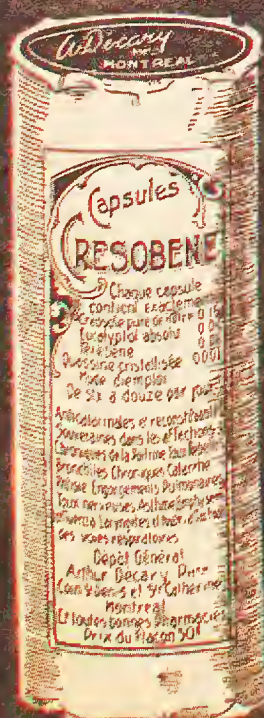 A. Décary
MONTREAL
Capsules
CRESOBENE
Chaque capsule
contient exactement
Créosote pure de hêtre 0.15
Eucalyptol absolu
Quassine cristallisée 0.001
Mode d'emploi
De six à douze par jour
Anticatarrhales et reconstituantes
Souveraines dans les affections
Chroniques de la Poitrine
Bronchites Chroniques Catarrhe
Phtisie Engorgements Pulmonaires
Toux nerveuses Asthme Emphysème
des voies respiratoires
Dépôt Général
Arthur Decary
Coin St Denis et Ste Catherine
Montreal
Et toutes bonnes Pharmacies
Prix du Flacon 50¢